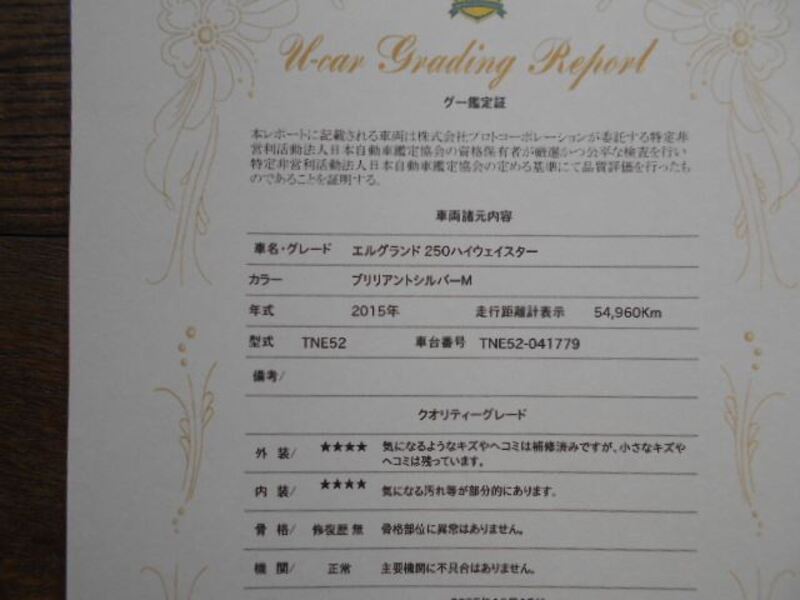 U-car Grading Report
グー鑑定証
本レポートに記載される車両は株式会社プロトコーポレーションが委託する特定非
営利活動法人日本自動車鑑定協会の資格保有者が厳選かつ公平な検査を行い
特定非営利活動法人日本自動車鑑定協会の定める基準にて品質評価を行ったも
のであることを証明する。
車両諸元内容
車名・グレード エルグランド 250ハイウェイスター
カラー ブリリアントシルバーM
年式 2015年 走行距離計表示 54,960Km
型式 TNE52 車台番号 TNE52-041779
備考/
クオリティーグレード
外 装/ ★★★★ 気になるようなキズやヘコミは補修済みですが、小さなキズや
ヘコミは残っています。
内 装/ ★★★★ 気になる汚れ等が部分的にあります。
骨 格/ 修復歴 無 骨格部位に異常はありません。
機 関/ 正常 主要機関に不具合はありません。